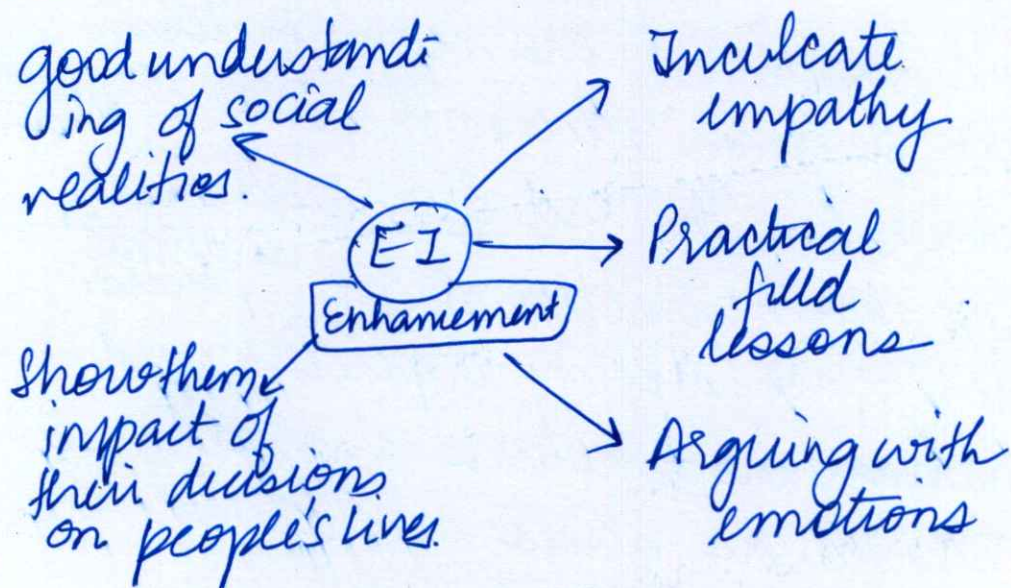 good understandi
ing of social
realities.
Inculcate
empathy
EI
Enhancement
Practical
field
lessons
Show them
impact of
their decisions
on people's lives.
Arguing with
emotions